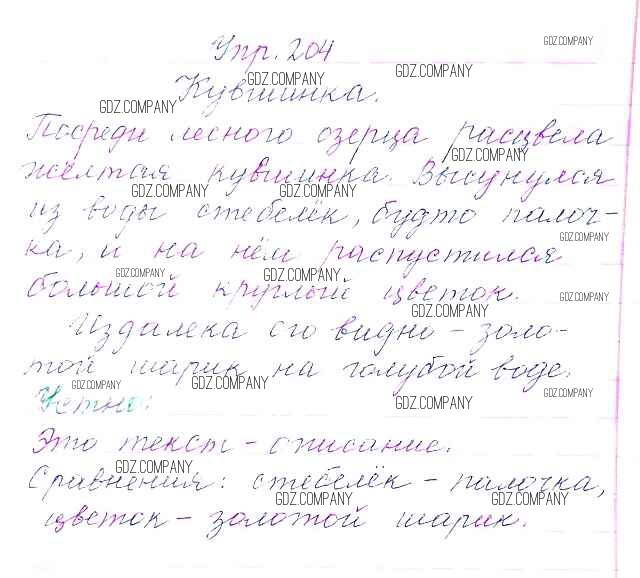 Упр. 204
GDZ.COMPANY
GDZ.COMPANY
GDZ.COMPANY
Кувшинка.
GDZ.COMPANY
Посреди лесного озерца расцвела
GDZ.COMPANY
жёлтая кувшинка. Высунулся
GDZ.COMPANY GDZ.COMPANY
из воды стебелёк, будто палоч-
GDZ.COMPANY
ка, и на нём распустился
GDZ.COMPANY GDZ.COMPANY
большой круглый цветок.
GDZ.COMPANY
GDZ.COMPANY
Издалека его видно - золо-
той шарик на голубой воде.
GDZ.COMPANY GDZ.COMPANY
GDZ.COMPANY
Устно:
GDZ.COMPANY
Это текст - описание.
GDZ.COMPANY
Сравнения: стебелёк - палочка,
GDZ.COMPANY GDZ.COMPANY
цветок - золотой шарик.